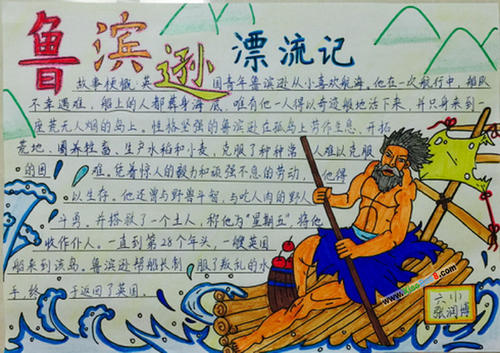 鲁滨逊漂流记
故事梗概:英国青年鲁滨逊从小喜欢航海。他在一次航行中,船队
不幸遇难,船上的人都葬身海底,唯有他一人得以奇迹般地活下来,并只身来到
座荒无人烟的岛上。性格坚强的鲁滨逊在孤岛上劳作生息,开拓
荒地、圈养牲畜,生产水稻和小麦,克服了种种常人难以克服
的困难,凭着惊人的毅力和顽强不息的劳动,他得
以生存。他还曾与野兽斗智,与吃人肉的野人
斗勇。并搭救了一个土人,称他为"星期五",将他
收作仆人,一直到第28个年头,一艘英国
船来到该岛。鲁滨逊帮船长制服了叛乱的水
手,终于返回了英国
六(1)
张润博